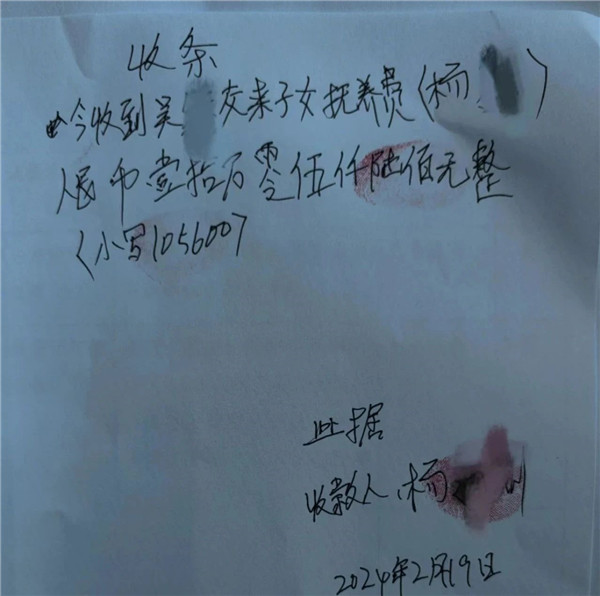 收条
今收到吴 友来子女抚养费（杨 ）
人民币壹拾万零伍仟陆佰元整
（小写105600）
此据
收款人：杨
2024年2月19日